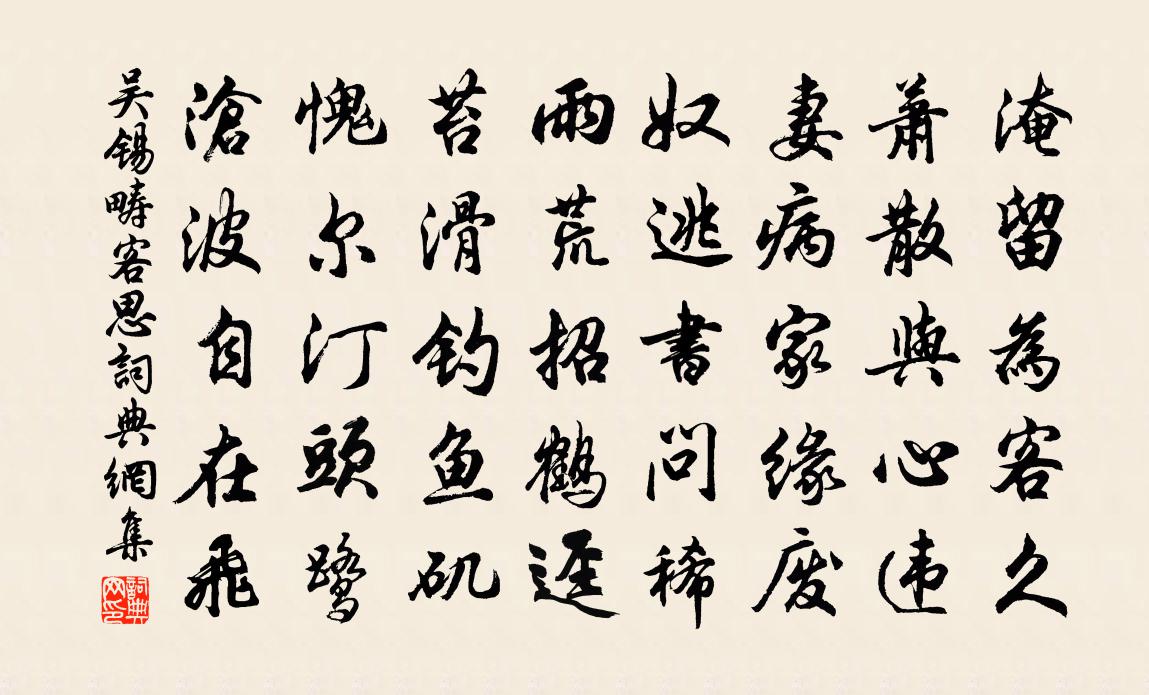 淹留為客久
蕭散與心违
妻病家缘废
奴逃書問稀
雨荒招鶴逕
苔滑钓鱼矶
愧尔汀頭鹭
滄波自在飛
吴锡疇客思詞典網集
詞典